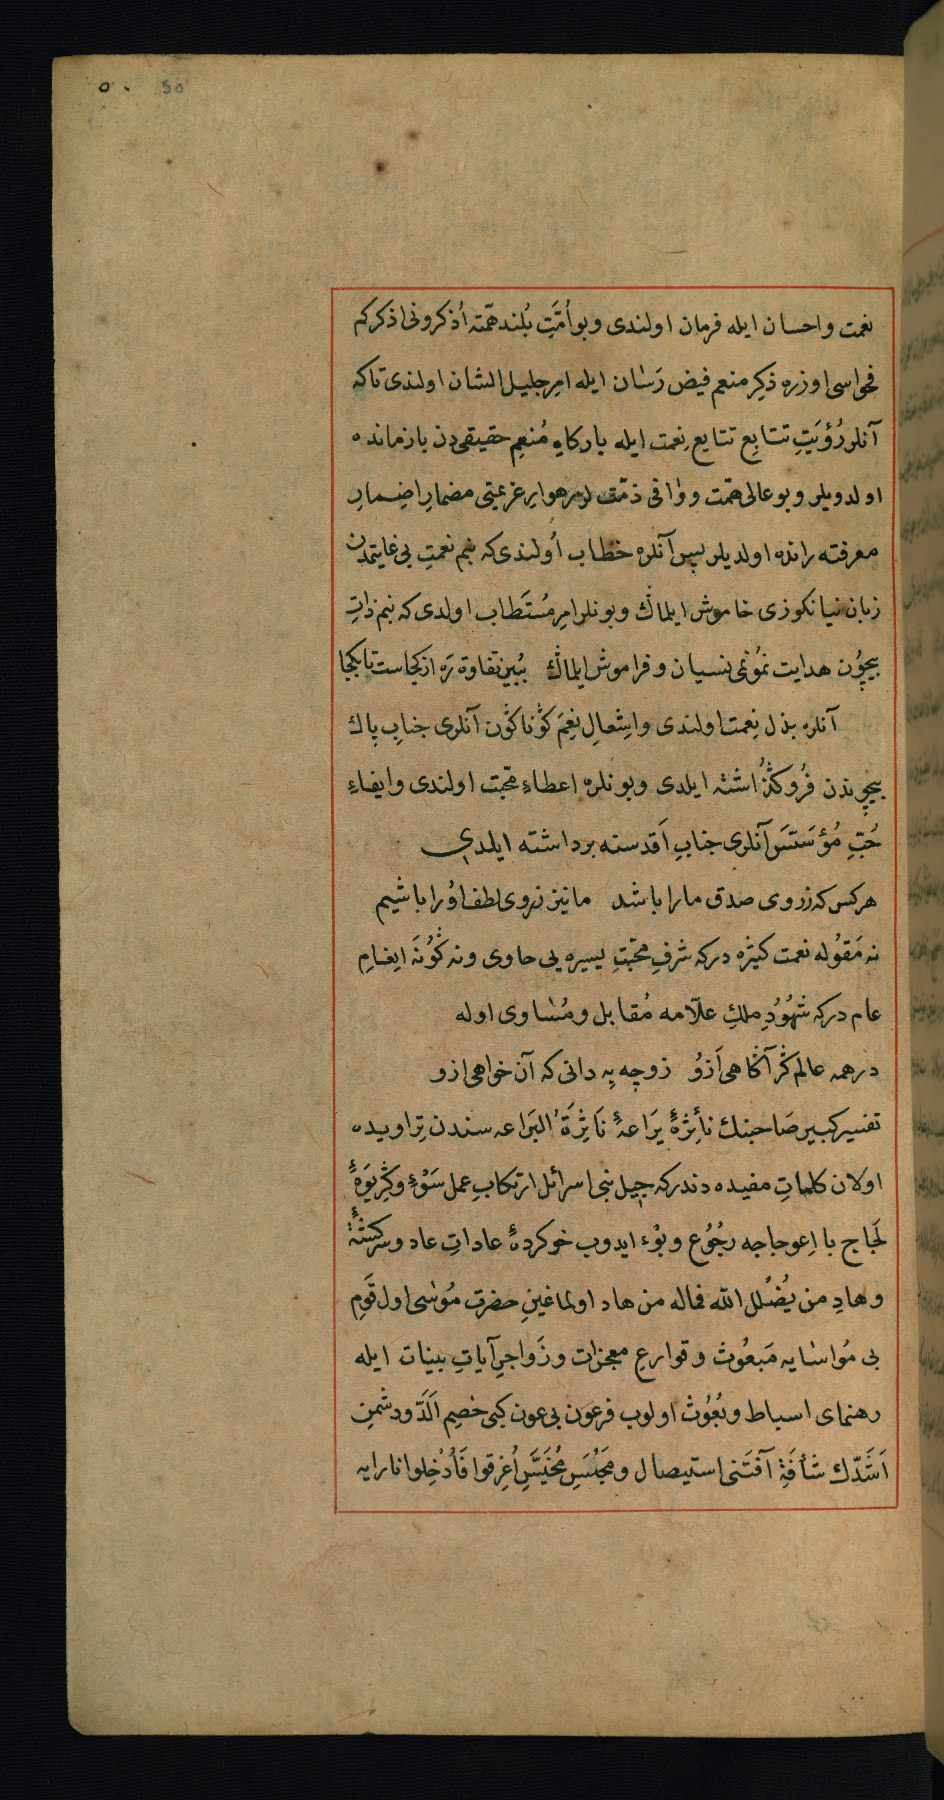 ٥٠ 50
نعمت واحسان ایله فرمان اولندی وبو اُمَّتِ بُلند همّته اُذكرونی اذكركم
فحواسی اوزره ذكِر منعم فیض رَسَان ایله امرِ جلیل الشان اولندی تاكه
آنلر رُؤیَتِ تتابع تتایع نِعمت ایله باركاهِ مُنعِم حقیقیدن بازمانده
اولدویلر وبو عالی همّت ووافی ذمّت لر رهوارِ عزیمتی مضمارِ اضِمارِ
معرفته رانده اولدیلر پس آنلره خطاب اُولندی كه بنم نعمتِ بی غایتمدن
زبان نیانكوزی خاموش ایلماڭ وبونلر امرِ مُستَطاب اولدی كه بنم ذاتِ
بیچوُن هدایت نمُوُنمی نسیان وفراموش ایلماڭ ببُین تفاوة رَه از كجاست تا بكجا
آنلره بذل نِعمت اولندی واشِعالِ نِعَمَ كوُناكوُن آنلری جنابِ پاك
بیچوندن فرُوكذُاشته ایلدی وبونلره اعطاءِ محّبت اولندی وایفاءِ
حُبِّ مُؤسَتسَ آنلری جنابِ اَقدسنه برداشته ایلدی
هركس كه زروی صدق مارا باشد مانیز زروی لطف اوُرا باشیم
نه مَقوُله نعمت كیثره دركه شرفِ محّبتِ یسیره یی حاوی ونه كوُنَه ایغامِ
عام دركه شهُوُدِ ملكِ علاّمه مُقابل ومُسٰاوی اوله
در همه عالم كر آكاهی اَزوُ زو چه بِه دانی كه آن خواهی ازو
تفسیر كبیر صَاحبنك نأئِرهٔ یَرَاعهٔ نَاثِرَةُ البَرَاعه سندن تراویده
اولان كلماتِ مفیده دندركه چیل بنی اسرائل ارتكابِ عمل سَوُءٍ وكِریوَهٔ
لَجاج با اِعوجاجه رجُوُع وبوُء ایدوب خوكردهٔ عاداتِ عاد وسركشتهٔ
وهادِ من یُضُلل اللّه فماله من هاد اولماغین حضرت مُوسٰی اول قَومِ
بی مُواسٰایه مَبعُوث وقوارعِ معجزات وزَواجرِ آیاتِ بینات ایله
رهنمای اسباط وبعُوُث اولوب فرعون بی عون كبی خصِم اَلَدّ ودشمنِ
اَشَدّك شأفَةِ آفَتَنی استیصال ومَجلُسَِ مُخَیَّسِ اُغرِقوا فَأُدُخِلوا نارا یه